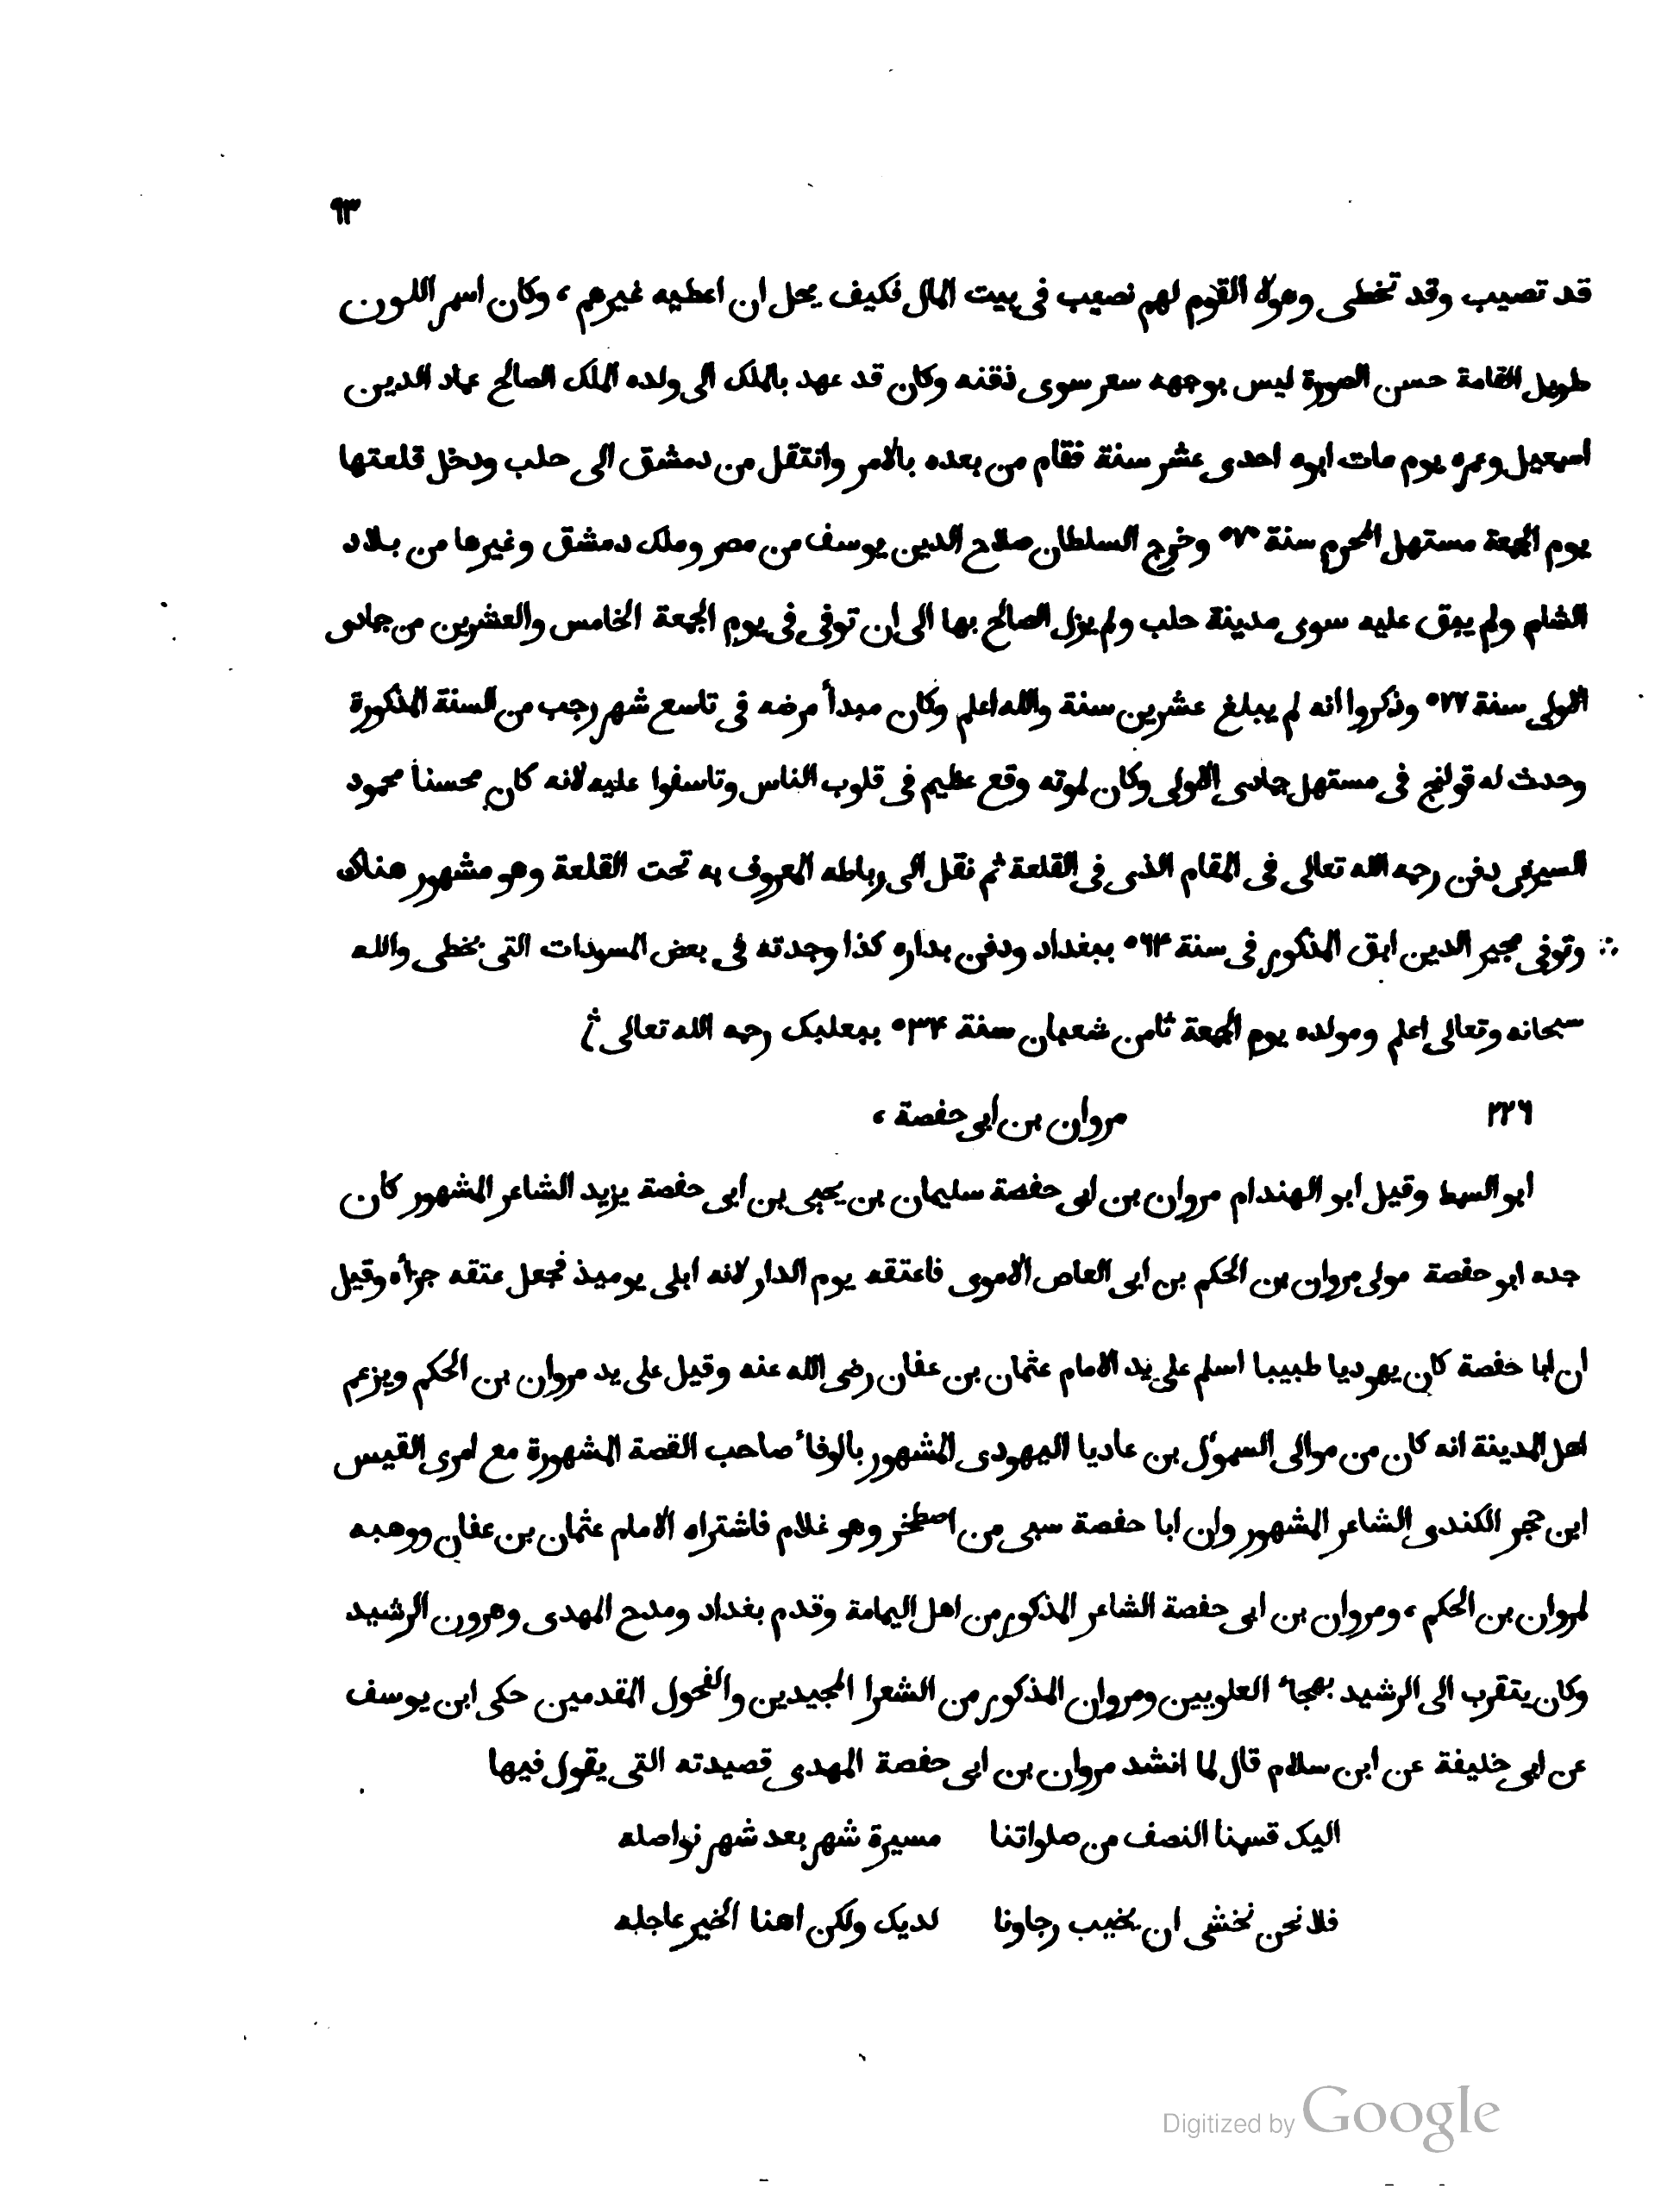 ٩٣
قد تصيب وقد تخطى وهولا القوم لهم نصيب فى بيت المال فكيف يحل ان اعطيه غيرهم ، وكان اسمر اللون
طويل القامة حسن الصورة ليس بوجهه سعر سوى ذقنه وكان قد عهد بالملك الى ولده الملك الصالح عماد الدين
اسمعيل وعمره يوم مات ابوه احدى عشر سنة فقام من بعده بالامر وانتقل من دمشق الى حلب ودخل قلعتها
يوم الجمعة مستهل المحرم سنة ٥٧٠ وخرج السلطان صلاح الدين يوسف من مصر وملك دمشق وغيرها من بلاد
الشام ولم يبق عليه سوى مدينة حلب ولم يزل الصالح بها الى ان توفى فى يوم الجمعة الخامس والعشرين من جمادى
الاولى سنة ٥٧٧ وذكروا انه لم يبلغ عشرين سنة والله اعلم وكان مبدأ مرضه فى تاسع شهر رجب من السنة المذكورة
وحدث له قولنج فى مستهل جمادى الاولى وكان لموته وقع عظيم فى قلوب الناس وتاسفوا عليه لانه كان محسنا محمود
السيرة دفن رحمه الله تعالى فى المقام الذى فى القلعة ثم نقل الى رباطه المعروف به تحت القلعة وهو مشهور هناك
وتوفى مجير الدين ابق المذكور فى سنة ٥٦۴ ببغداد ودفن بداره كذا وجدته فى بعض المسودات التى بخطى والله
سبحانه وتعالى اعلم ومولده يوم الجمعة ثامن شعبان سنة ٥٣۴ ببعلبك رحمه الله تعالى
٧٢٦ مروان بن ابى حفصة ،
ابو السمط وقيل ابو الهندام مروان بن ابى حفصة سليمان بن يحيى بن ابى حفصة يزيد الشاعر المشهور كان
جده ابو حفصة مولى مروان بن الحكم بن ابى العاص الاموى فاعتقه يوم الدار لانه ابلى يوميذ فجعل عتقه جزأه وقيل
ان ابا حفصة كان يهوديا طبيبا اسلم على يد الامام عثمان بن عفان رضى الله عنه وقيل على يد مروان بن الحكم ويزعم
اهل المدينة انه كان من موالى السمؤل بن عاديا اليهودى المشهور بالوفاء صاحب القصة المشهورة مع امرى القيس
ابن حجر الكندى الشاعر المشهور وان ابا حفصة سبى من اصطخر وهو غلام فاشتراه الامام عثمان بن عفان ووهبه
لمروان بن الحكم ، ومروان بن ابى حفصة الشاعر المذكور من اهل اليمامة وقدم بغداد ومدح المهدى وهرون الرشيد
وكان يتقرب الى الرشيد بهجاء العلويين ومروان المذكور من الشعرا المجيدين والفحول المقدمين حكى ابن يوسف
عن ابى خليفة عن ابن سلام قال لما انشد مروان بن ابى حفصة المهدى قصيدته التى يقول فيها
اليك قسمنا النصف من صلواتنا مسيرة شهر بعد شهر نواصله
فلا نحن نخشى ان يخيب رجاونا لديك ولكن اهنا الخير عاجله
Digitized by Google